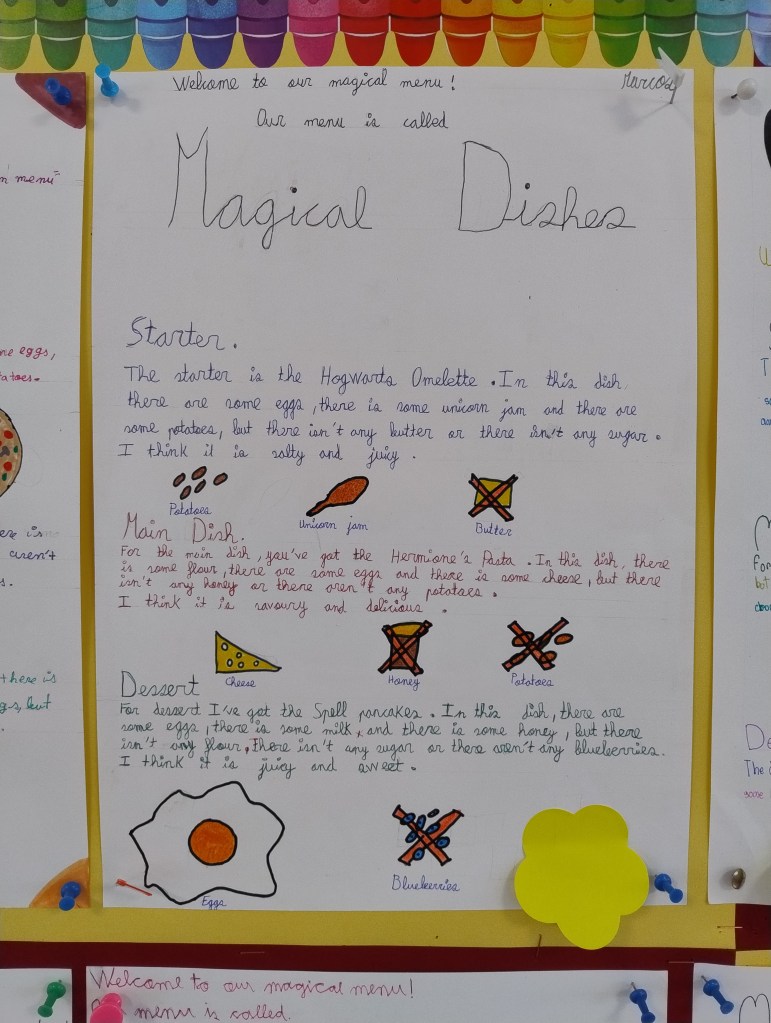 Welcome to our magical menu!
Marcos
Our menu is called
Magical Dishes
Starter.
The starter is the Hogwarts Omelette. In this dish,
there are some eggs, there is some unicorn jam and there are
some potatoes, but there isn't any butter or there isn't any sugar.
I think it is salty and juicy.
Potatoes
Unicorn jam
Butter
Main Dish.
For the main dish, you've got the Hermione's Pasta. In this dish, there
is some flour, there are some eggs and there is some cheese, but there
isn't any honey or there aren't any potatoes.
I think it is savoury and delicious.
Cheese
Honey
Potatoes
Dessert
For dessert I've got the Spell pancakes. In this dish, there are
some eggs, there is some milk, and there is some honey, but there
isn't any flour, there isn't any sugar or there aren't any blueberries.
I think it is juicy and sweet.
Eggs
Blueberries
Welcome to our magical menu!
menu is called.
menu"
eggs,
aren't
there is
but